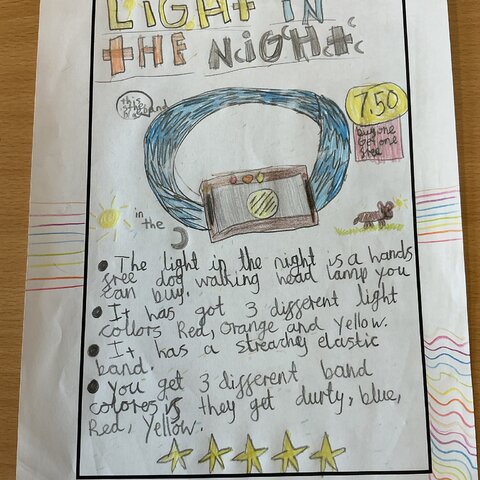 LIGHT IN
THE NIGHt
this is the
band
7.50
buy one
Got one
free
in
the
• The light in the night is a hands
free dog walking head lamp you
can buy.
• It has got 3 different light
collors Red, Orange and Yellow.
• It has a streachey elastic
band.
• You get 3 different band
colores if they get durty, blue,
Red, Yellow.